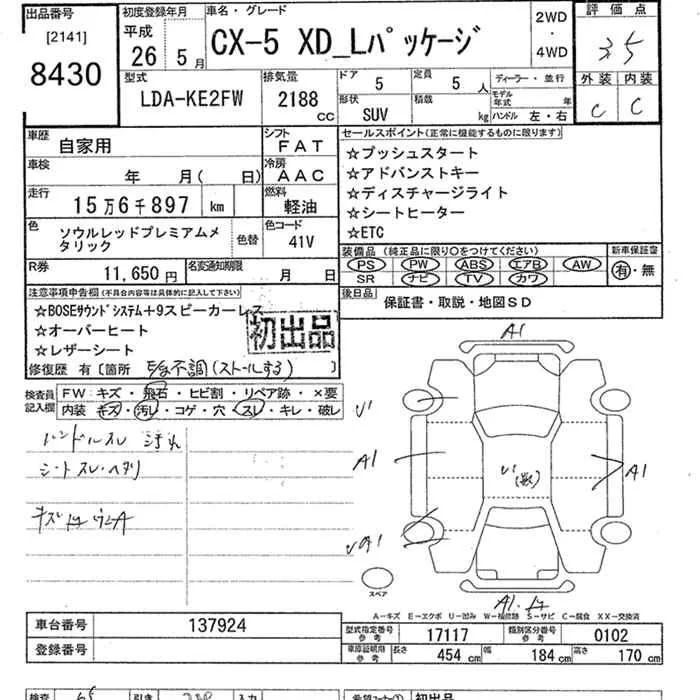 出品番号
[2141]
8430
初度登録年月
平成
26 5月
車名・グレード
CX-5 XD_Lパッケージ
2WD
・
4WD
評価点
3.5
外装 内装
C C
型式
LDA-KE2FW
排気量
2188 cc
ドア 5
定員 5 人
形状 SUV
積載 kg
ディーラー・並行
モデル年式 年
ハンドル 左・右
車歴
自家用
シフト
FAT
車検
年 月( 日)
冷房
AAC
走行
15万6千897 km
燃料
軽油
色
ソウルレッドプレミアムメタリック
色替
色コード
41V
R券
11,650円
名変通知期限
月 日
セールスポイント(正常に機能するものに限ります)
☆プッシュスタート
☆アドバンストキー
☆ディスチャージライト
☆シートヒーター
☆ETC
装備品 (純正品に限り○をつけてください)
PS PW ABS エアB AW
SR ナビ TV カワ
新車保証書
有・無
後日品
保証書・取説・地図SD
注意事項申告欄(不具合内容等は具体的に記入して下さい)
☆BOSEサウンドシステム+9スピーカーレス
☆オーバーヒート
☆レザーシート
初出品
修復歴 有〔箇所
不調(ストールする) 〕
検査員記入欄
FW:キズ・飛石・ヒビ割・リペア跡・×要
内装 キズ・汚レ・コゲ・穴・スレ・キレ・破レ
ハンドルスレ 汚れ
シートスレ・ヘタリ
A1
U1
A1
U1
A1
スペア
A-キズ E-エクボ U-凹み W-補修跡 S-サビ C-腐食 XX-交換済
車台番号
137924
登録番号
型式指定番号
参考
17117
類別区分番号
参考
0102
車庫証明用
参考
長さ 454cm
幅 184cm
高さ 170cm
初出品